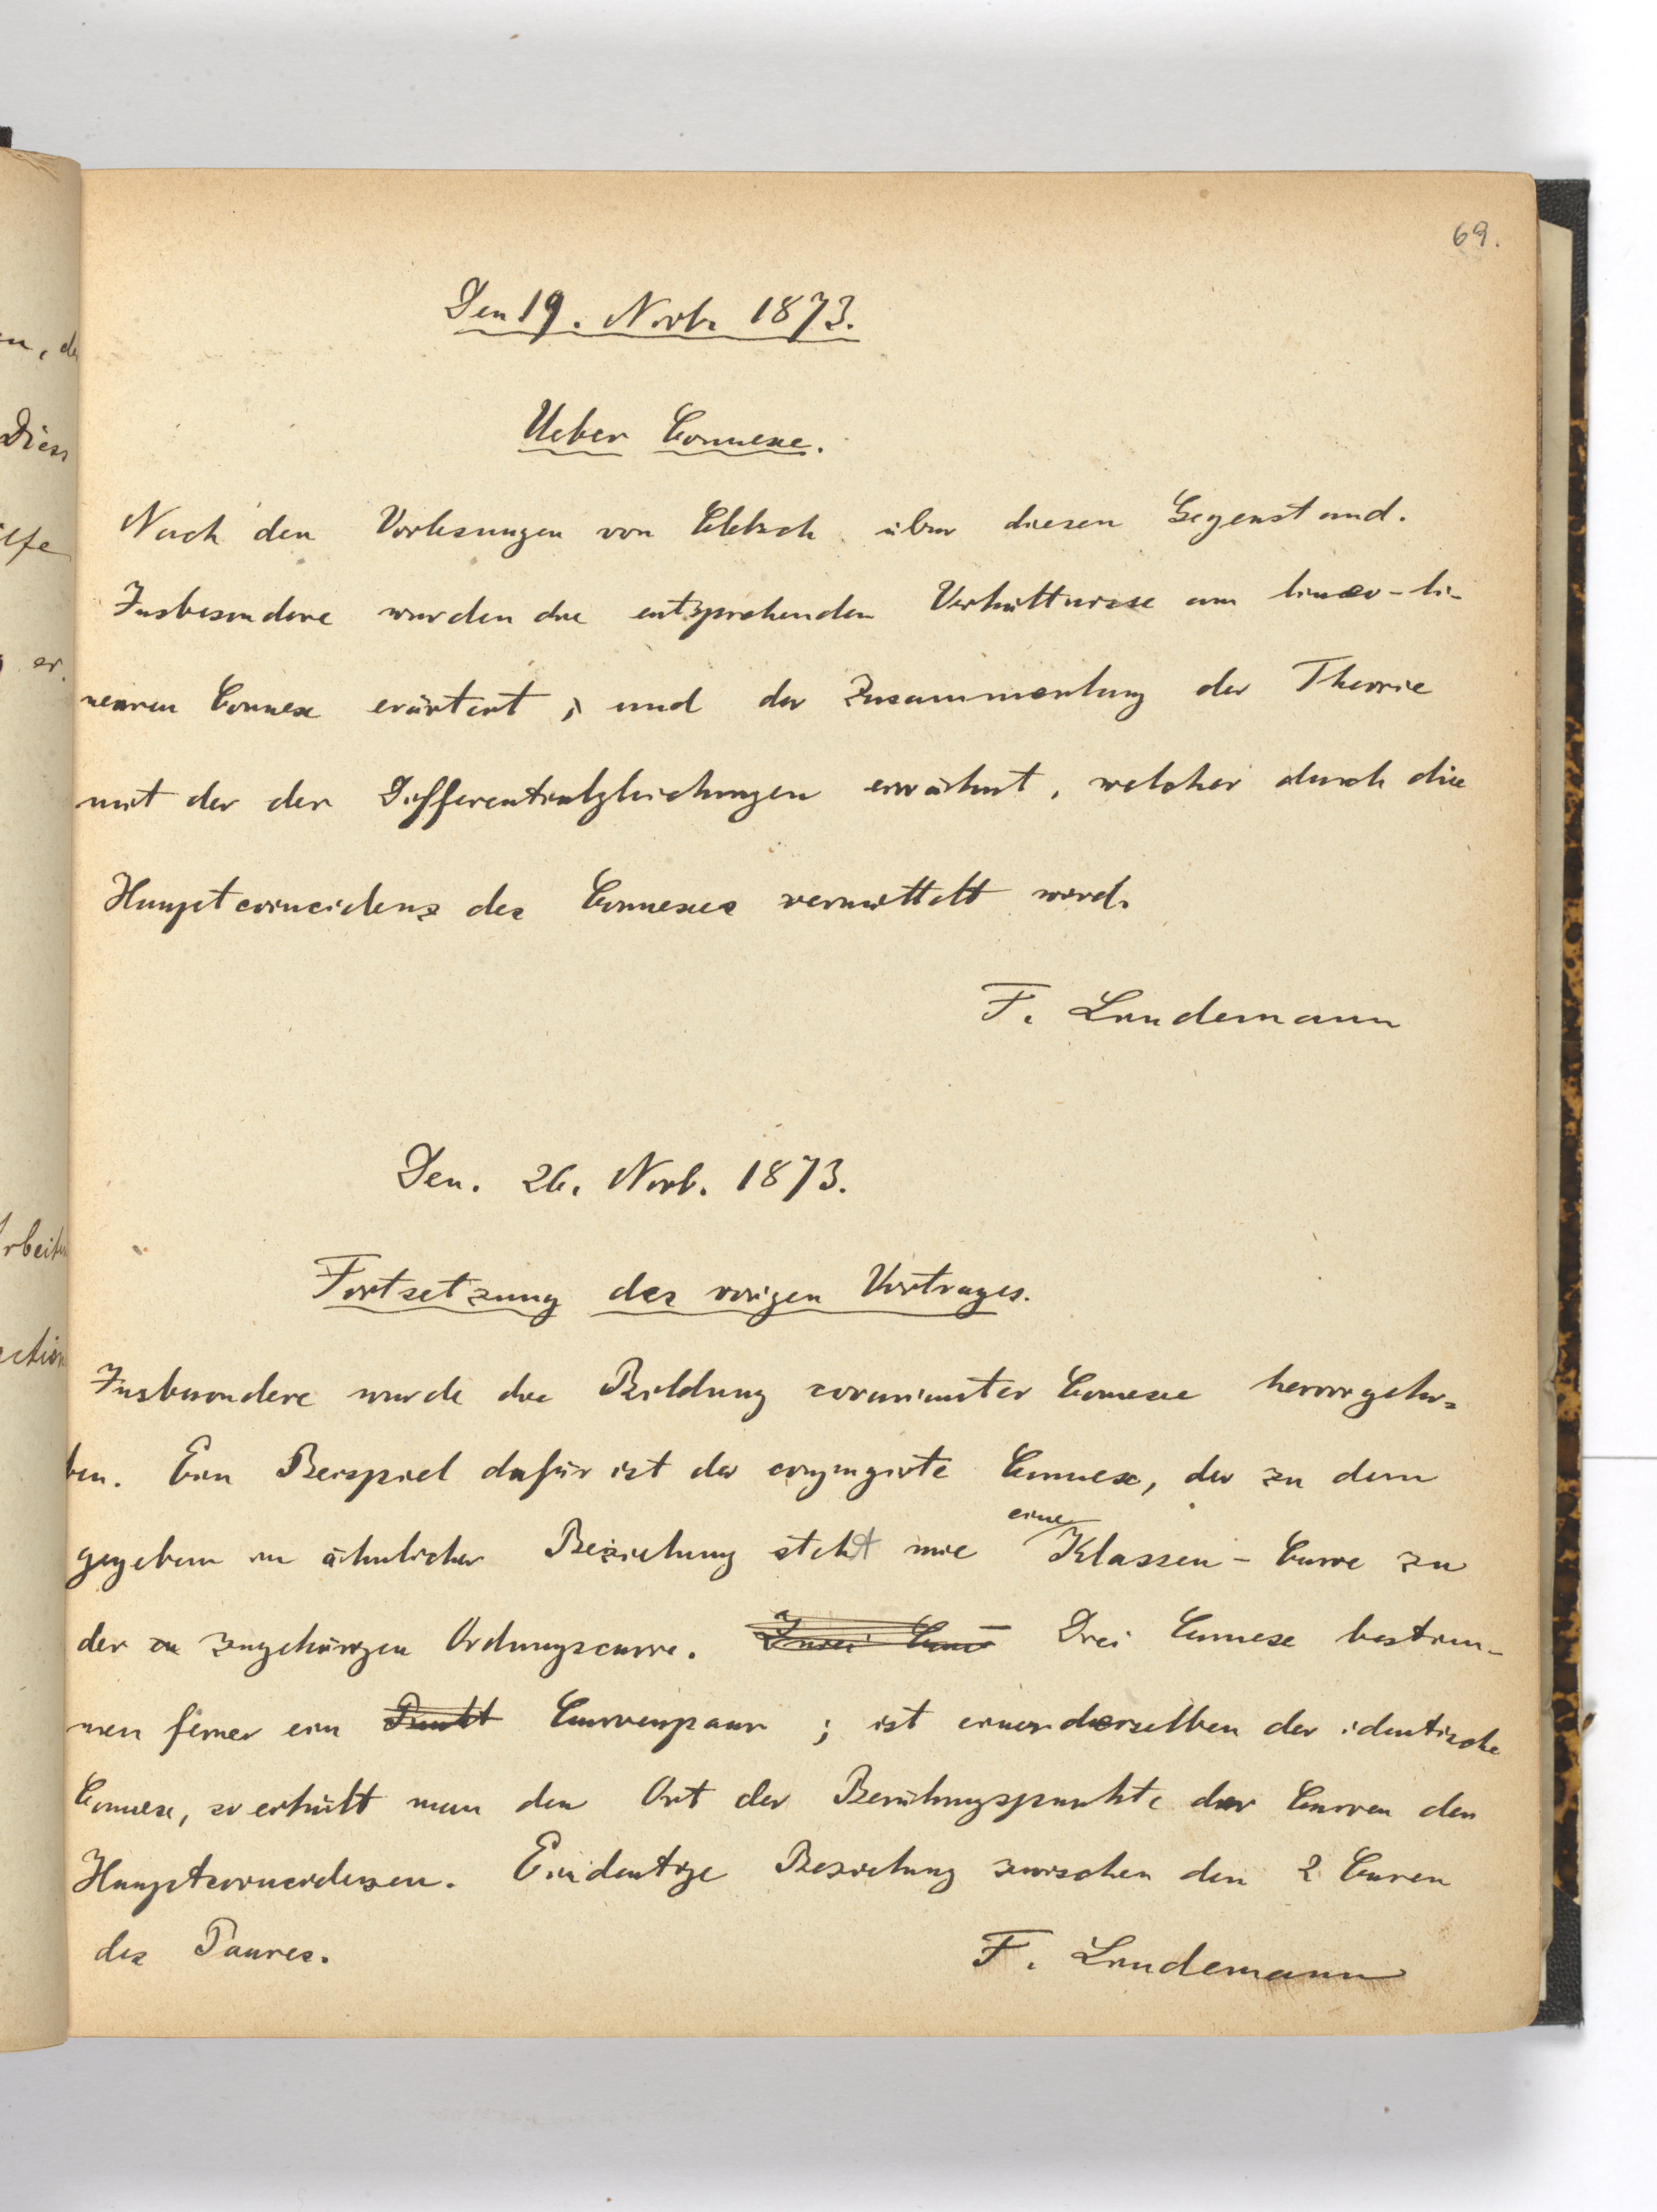 69.
Den 19. Novb. 1873.
Ueber Connexe.
Nach den Vorlesungen von Clebsch über diesen Gegenstand.
Insbesondere wurden die entsprechenden Verhältnisse am linear-li-
nearen Connex erörtert, und der Zusammenhang der Theorie
mit der der Differentialgleichungen erwähnt, welcher durch die
Hauptcoincidenz des Connexes vermittelt wird.
F. Lindemann
Den. 26. Novb. 1873.
Fortsetzung des vorigen Vortrages.
Insbesondere wurde die Bildung covarianter Connexe hervorgeho-
ben. Ein Beispiel dafür ist der conjugirte Connex, der zu dem
gegebenen in ähnlicher Beziehung steht wie eine Klassen-Curve zu
der zugehörigen Ordnungscurve. Zwei Drei Connexe bestim-
men ferner ein Punkt Curvenpaar; ist einer derselben der identische
Connex, so erhält man den Ort der Berührungspunkte der Curven der
Hauptcoincidenzen. Eindeutige Beziehung zwischen den 2 Curven
des Paares.
F. Lindemann
en, de
Dies
er.
Arbeiten